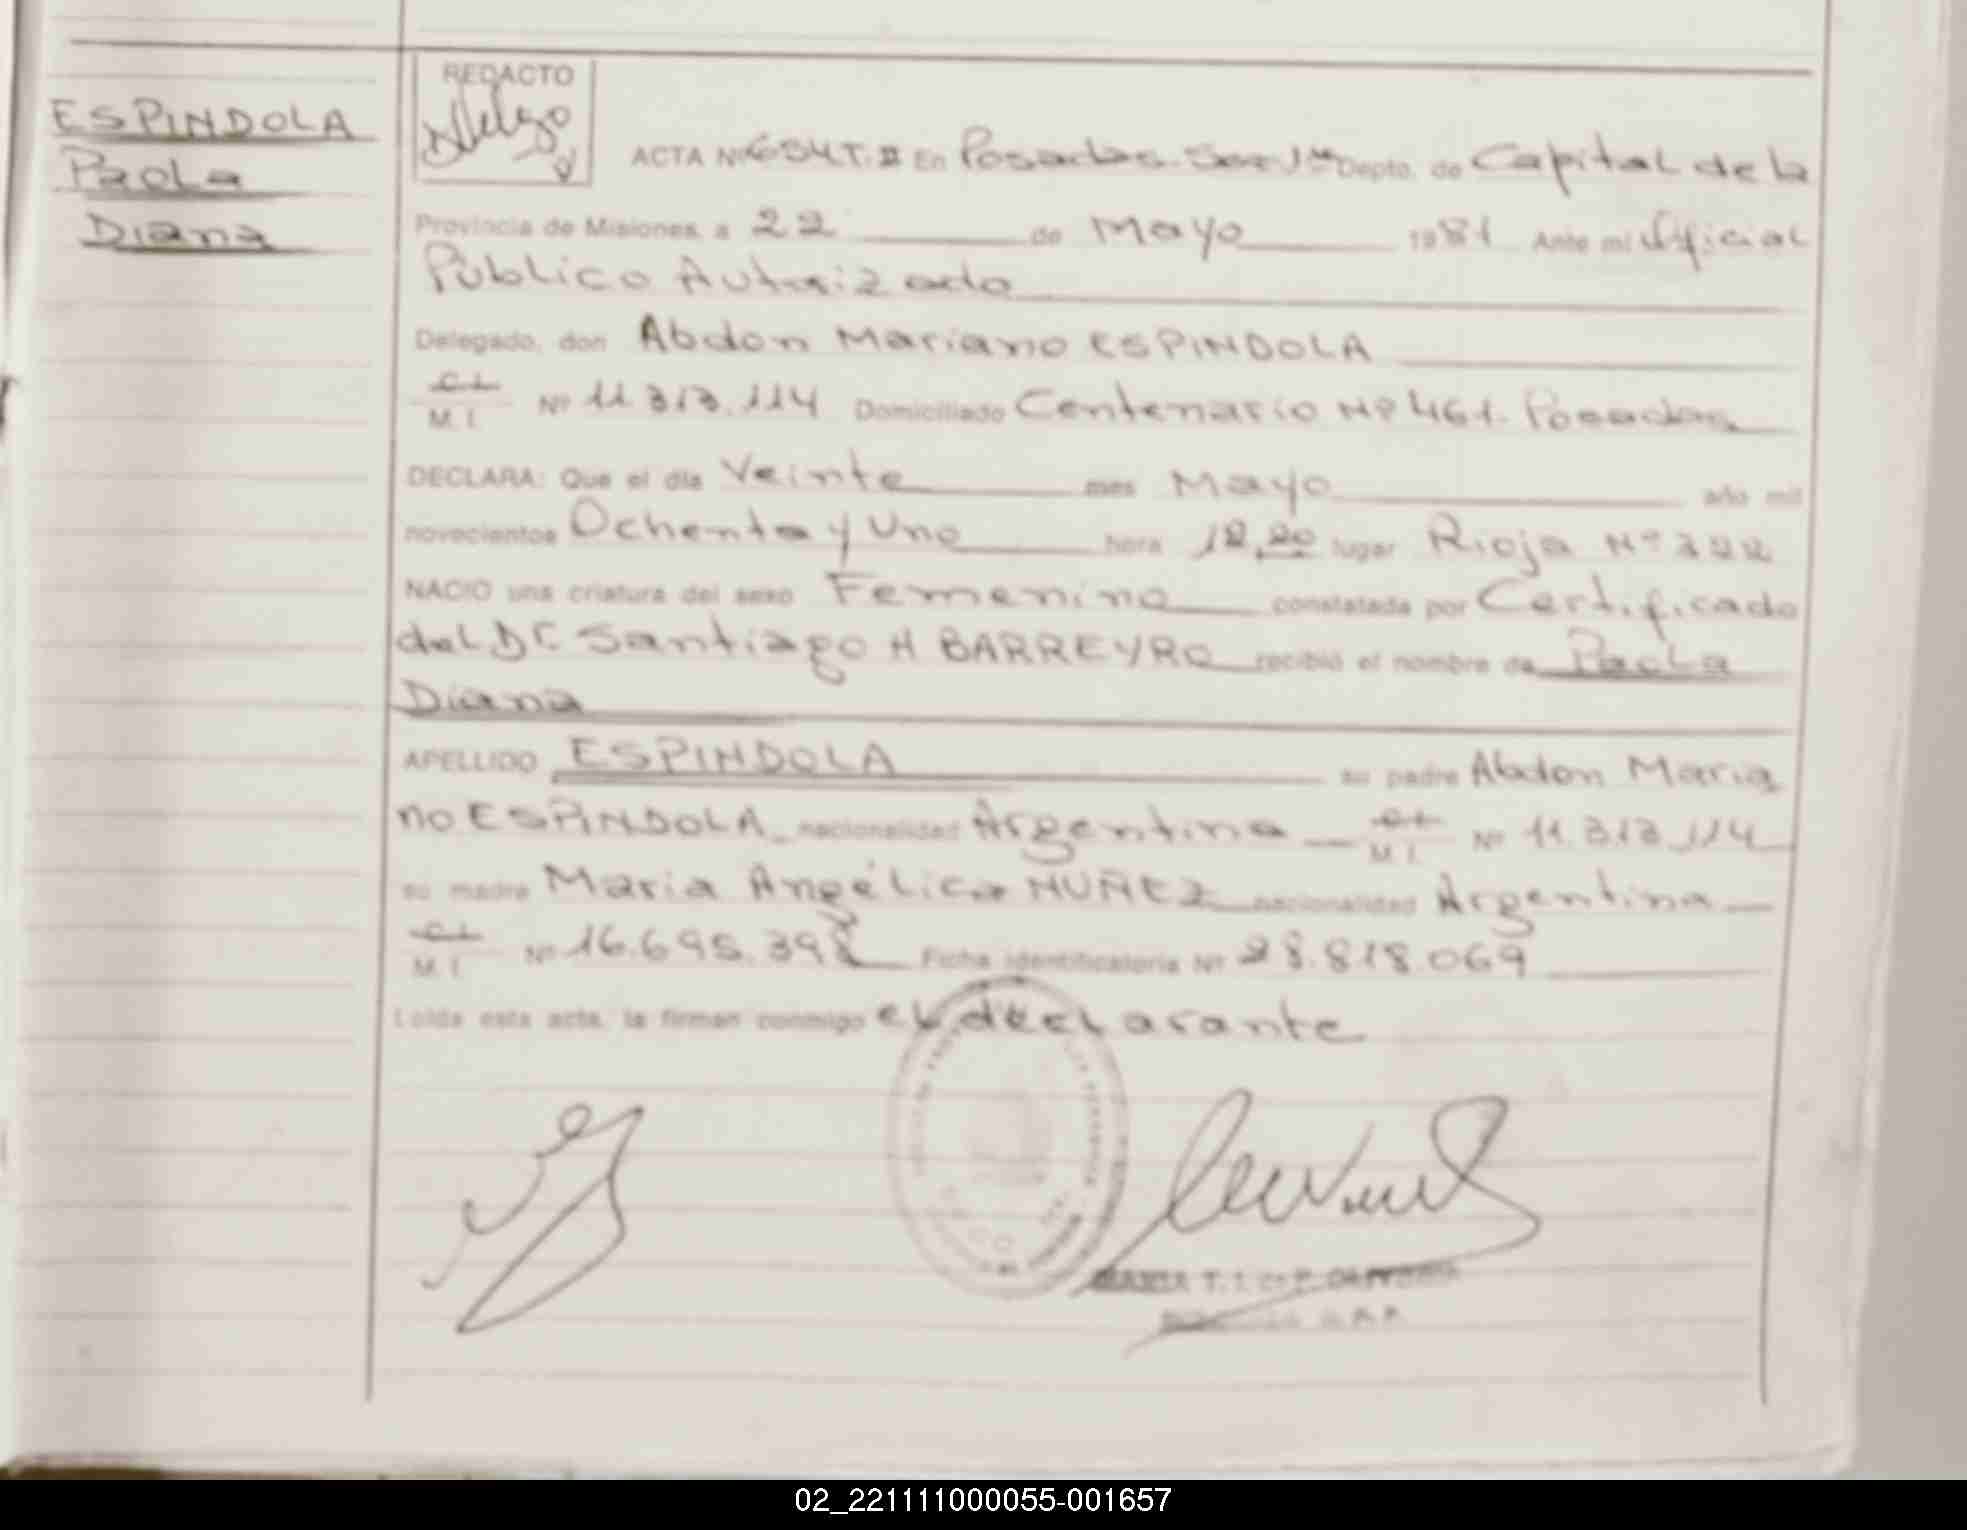 ESPINDOLA
Paola
Diana
REDACTO
ACTA Nº 654 T. II En Posadas. Secc 1ª Depto. de Capital de la
Provincia de Misiones, a 22 de Mayo 1981 Ante mi Oficial
Público Autorizado
Delegado, don Abdon Mariano ESPINDOLA
C.I.
M. I. Nº 11.313.114 Domiciliado Centenario Nº 461. Posadas
DECLARA: Que el día Veinte mes Mayo año mil
novecientos Ochenta y Uno hora lugar Rioja Nº
NACIO una criatura del sexo Femenino constatada por Certificado
del Dr Santiago H BARREYRO recibió el nombre de Paola
Diana
APELLIDO ESPINDOLA su padre Abdon Maria
no ESPINDOLA nacionalidad Argentina C.I.
M. I. Nº 11.313.114
su madre Maria Angélica NUÑEZ nacionalidad Argentina
C.I.
M. I. Nº 16.695.398 Ficha identificatoria Nº 28.818.069
Leída esta acta, la firman conmigo el declarante
MARIA T. I. de P.
02_221111000055-001657